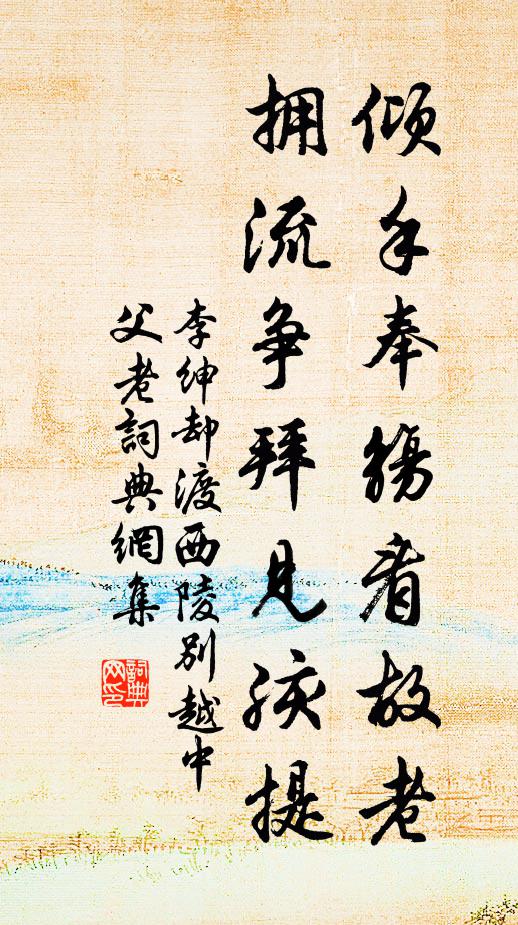 倾手奉觞看故老
拥流争拜见孩提
李绅却渡西陵别越中
父老詞典網集
詞典
网印